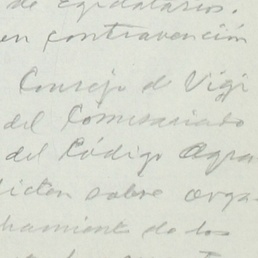 de ejidatarios.
en contravención
Consejo de Vigi
del Comisariado
del Código Agra
dicten sobre orga-
chamiento de los